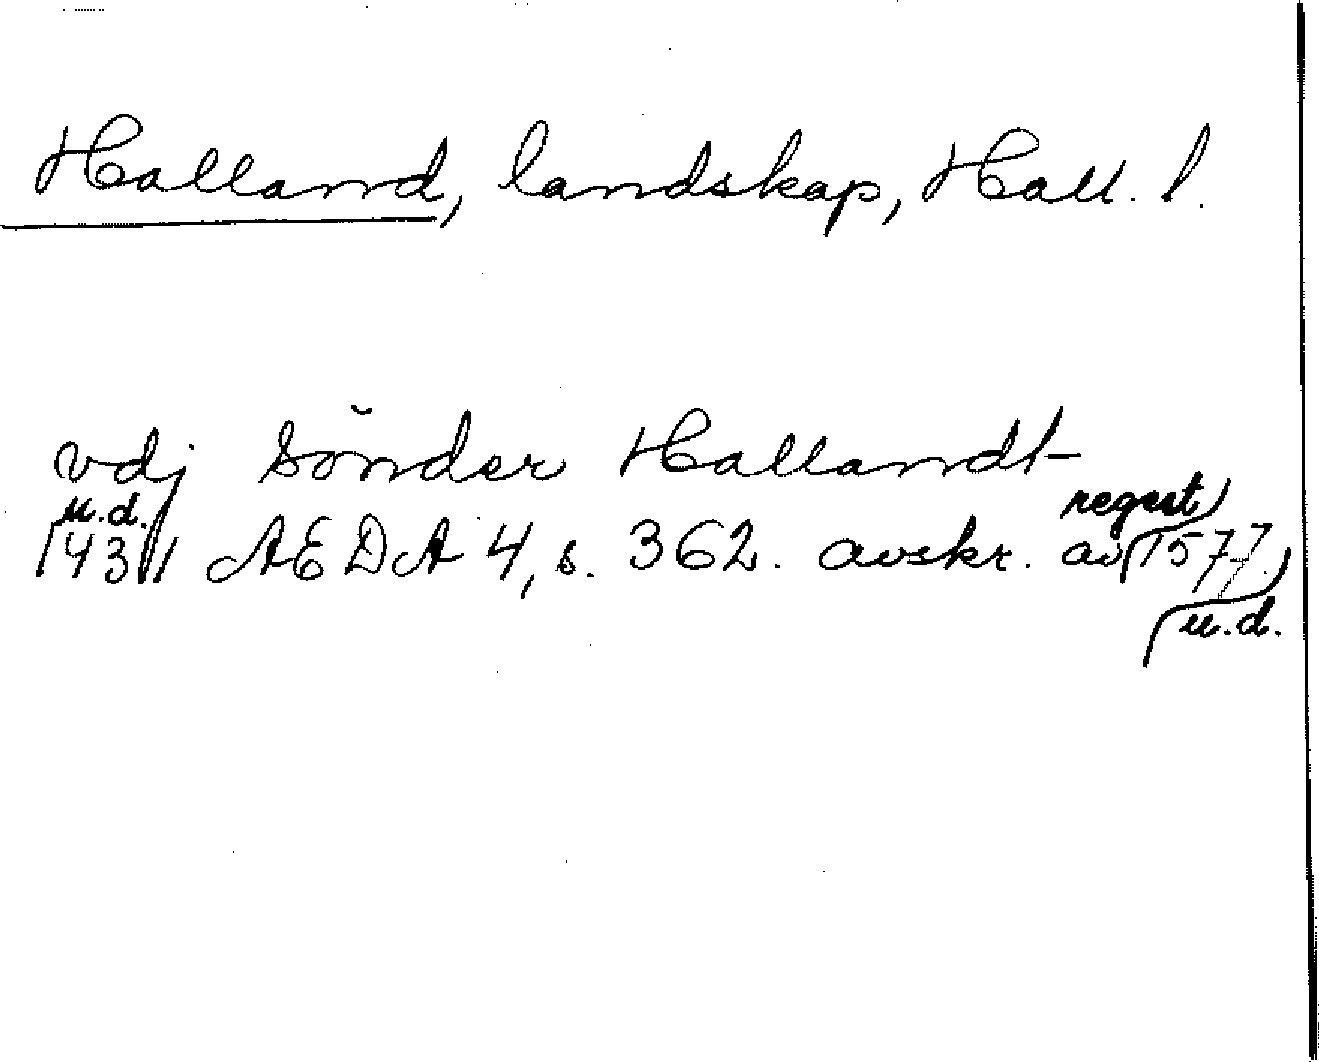 Halland, landskap, Hall. l.
vdj Sŏnder Hallandt
u.d. regest
1431 AEDA 4, s. 362. avskr. av 1577.
u.d.